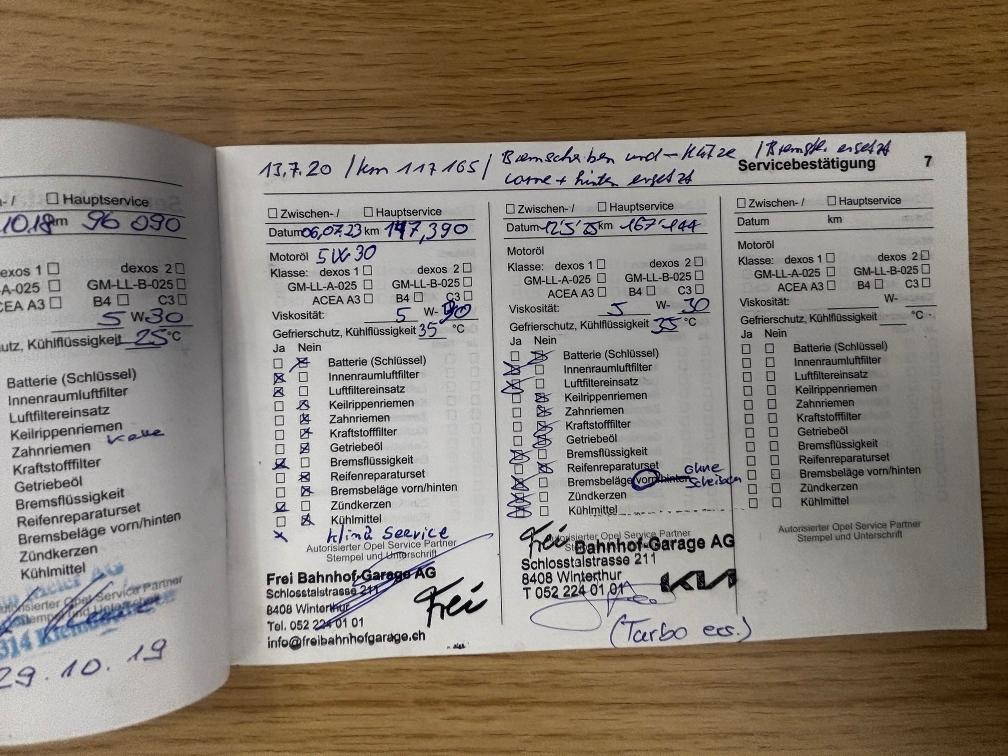 - / ☐ Hauptservice
10.18 km 96 090
dexos 1 ☐ dexos 2 ☐
-A-025 ☐ GM-LL-B-025 ☐
ACEA A3 ☐ B4 ☐ C3 ☐
5 W-30
utz, Kühlflüssigkeit 25 °C
Batterie (Schlüssel)
Innenraumluftfilter
Luftfiltereinsatz
Keilrippenriemen
Zahnriemen
Kraftstofffilter
Getriebeöl
Bremsflüssigkeit
Reifenreparaturset
Bremsbeläge vorn/hinten
Zündkerzen
Kühlmittel
Autorisierter Opel Service Partner
29.10.19
13.7.20 / km 117165 / Bremscheiben und - Klötze / Bremsfl. ersetzt
vorne + hinten ersetzt
Servicebestätigung 7
☐ Zwischen- / ☐ Hauptservice
Datum 06,07,23 km 147,390
Motoröl 5W30
Klasse: dexos 1 ☐ dexos 2 ☐
GM-LL-A-025 ☐ GM-LL-B-025 ☐
ACEA A3 ☐ B4 ☐ C3 ☐
Viskosität: 5 W-30
Gefrierschutz, Kühlflüssigkeit 35 °C
Ja Nein
Batterie (Schlüssel)
Innenraumluftfilter
Luftfiltereinsatz
Keilrippenriemen
Zahnriemen
Kraftstofffilter
Getriebeöl
Bremsflüssigkeit
Reifenreparaturset
Bremsbeläge vorn/hinten
Zündkerzen
Kühlmittel
Klima Service
Autorisierter Opel Service Partner
Stempel und Unterschrift
Frei Bahnhof-Garage AG
Schlosstalstrasse 211
8408 Winterthur
Tel. 052 224 01 01
info@freibahnhofgarage.ch
Frei
☐ Zwischen- / ☐ Hauptservice
Datum 12'5'25 km 167'144
Motoröl
Klasse: dexos 1 ☐ dexos 2 ☐
GM-LL-A-025 ☐ GM-LL-B-025 ☐
ACEA A3 ☐ B4 ☐ C3 ☐
Viskosität: 5 W- 30
Gefrierschutz, Kühlflüssigkeit 35 °C
Ja Nein
Batterie (Schlüssel)
Innenraumluftfilter
Luftfiltereinsatz
Keilrippenriemen
Zahnriemen
Kraftstofffilter
Getriebeöl
Bremsflüssigkeit
Reifenreparaturset
Bremsbeläge vorn/hinten ohne Scheiben
Zündkerzen
Kühlmittel
Autorisierter Opel Service Partner
Frei Bahnhof-Garage AG
Schlosstalstrasse 211
8408 Winterthur
T 052 224 01 01
KIA
(Turbo ers.)
☐ Zwischen- / ☐ Hauptservice
Datum km
Motoröl
Klasse: dexos 1 ☐ dexos 2 ☐
GM-LL-A-025 ☐ GM-LL-B-025 ☐
ACEA A3 ☐ B4 ☐ C3 ☐
Viskosität: W-
Gefrierschutz, Kühlflüssigkeit °C
Ja Nein
☐ ☐ Batterie (Schlüssel)
☐ ☐ Innenraumluftfilter
☐ ☐ Luftfiltereinsatz
☐ ☐ Keilrippenriemen
☐ ☐ Zahnriemen
☐ ☐ Kraftstofffilter
☐ ☐ Getriebeöl
☐ ☐ Bremsflüssigkeit
☐ ☐ Reifenreparaturset
☐ ☐ Bremsbeläge vorn/hinten
☐ ☐ Zündkerzen
☐ ☐ Kühlmittel
Autorisierter Opel Service Partner
Stempel und Unterschrift